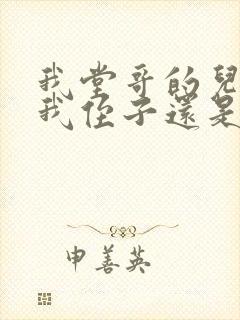 我堂哥的兒
我侄子還是
申善英